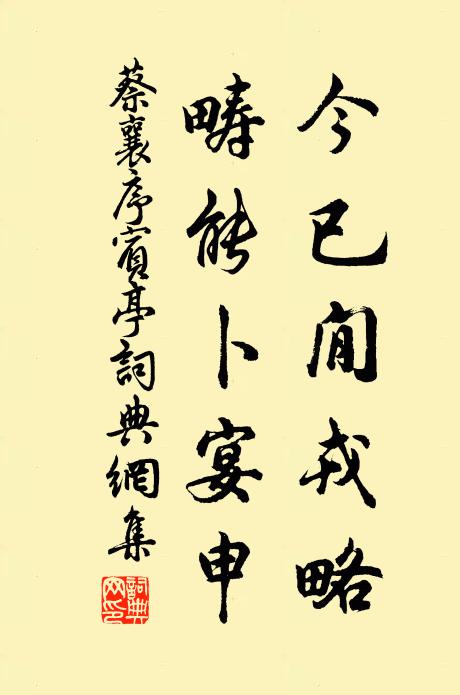 今已閒戎略
疇能卜宴申
蔡襄序賓亭詞典網集
詞典网印